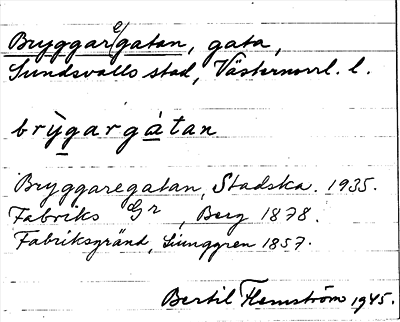 Bryggaregatan, gata,
Sundsvalls stad, Västernorrl. l.
brỳgargàtan
Bryggaregatan, Stadska. 1935.
Fabriks Gr, Berg 1878.
Fabriksgränd, Ljunggren 1857.
Bertil Flemström 1945.